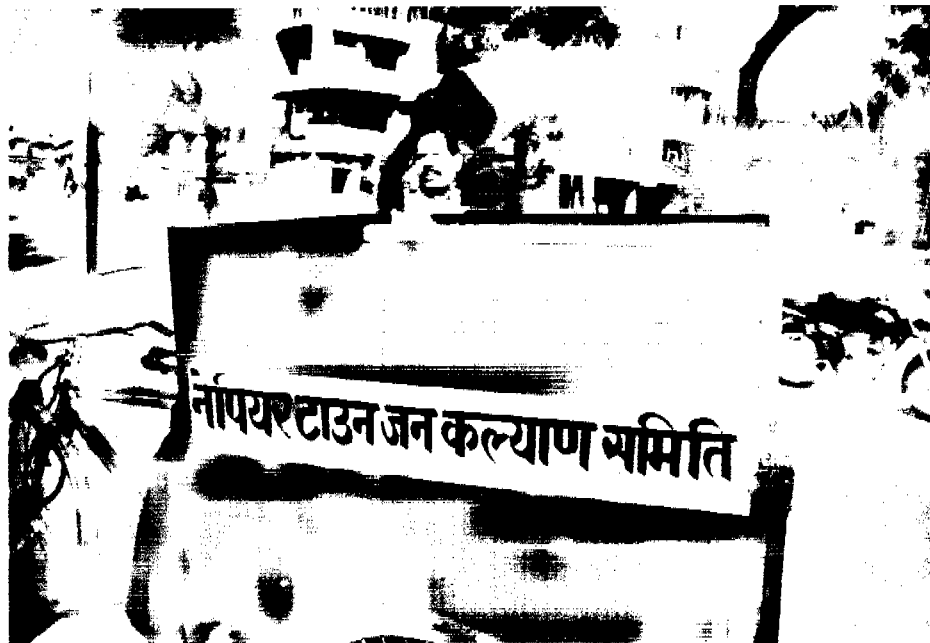 नेपियर टाउन जन कल्याण समिति